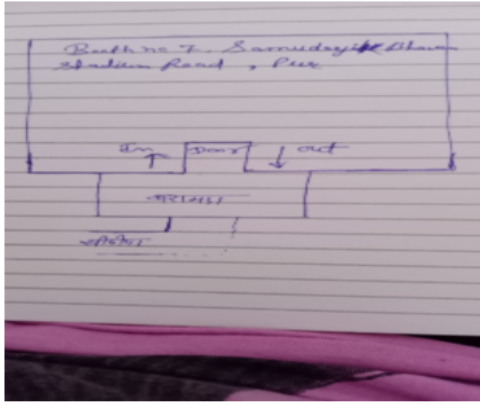 Booth no 7. Samudayik Bhawan
Stadium Road, Pur
In Door out
बरामदा